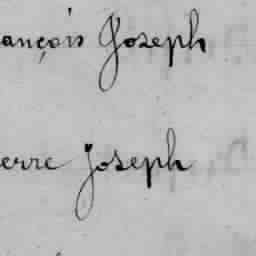 ançois Joseph
erre Joseph